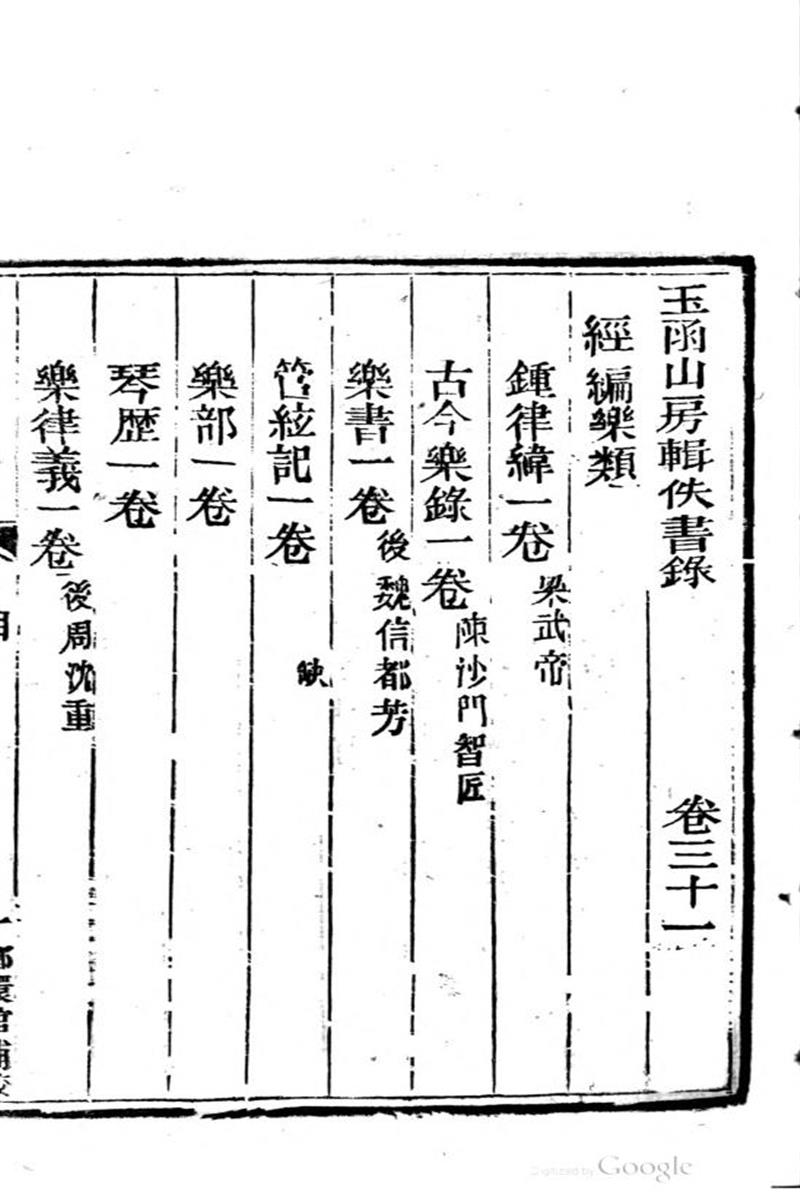 玉函山房輯佚書錄 卷三十一
經編樂類
鍾律緯一卷 梁武帝
古今樂錄一卷 陳沙門智匠
樂書一卷 後魏信都芳
管絃記一卷 缺
樂部一卷
琴歷一卷
樂律義一卷 後周沈重
Digitized by Google